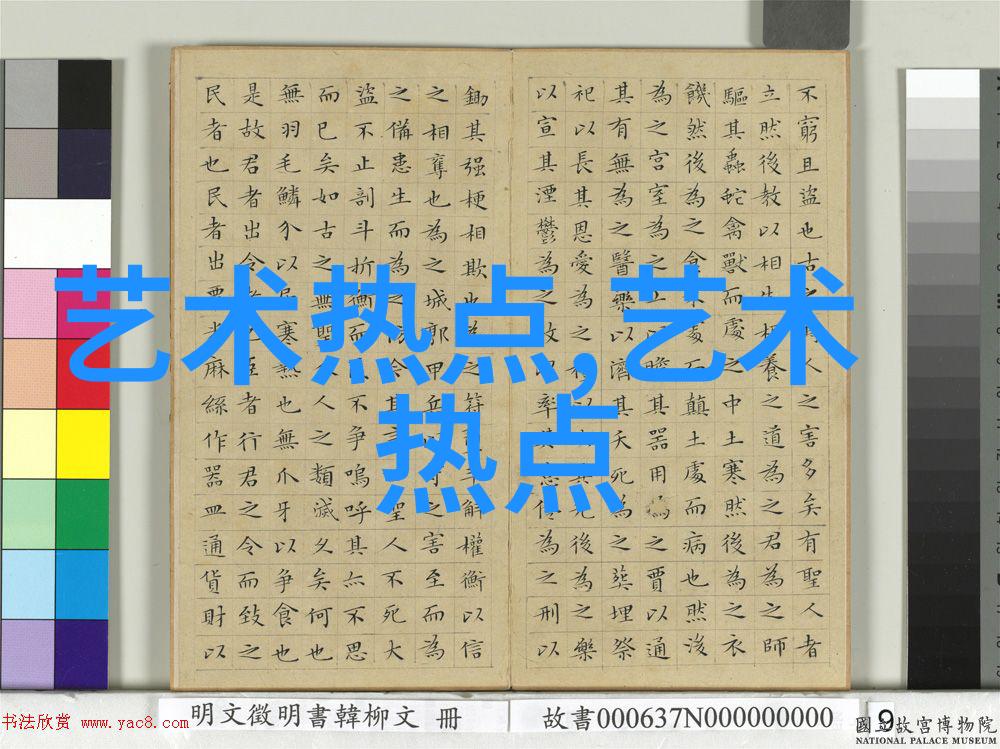 不窮且盜也古之人之害多矣有聖人者
立然後教以相生相養之道為之君為之師
驅其蟲蛇禽獸而處之中土寒然後為之衣
饑然後為之食木處而顛土處而病也然後
為之宮室為之工以贍其器用為之賈以通
其有無為之醫藥以濟其夭死為之葬埋祭
祀以長其恩愛為之禮以其先後為之樂
以宣其湮鬱為之政以率其怠為之刑以
鋤其强梗相欺也為之符斗斛權衡以信
之相奪也為之城郭甲兵以守之害至而為
之備患生而為之今其聖人不死大
盜不止剖斗折衡而不爭嗚呼其亦不思
而已矣如古之無聖人之類滅久矣何也
無羽毛鱗介以居寒熱也無爪牙以爭食也
是故君者出令者也臣者行君之令而致之
民者也民者出粟米麻絲作器皿通貨財以
艺术热点,艺术
热点
明文徵明書韓柳文 冊
故書000637N000000000
9
书法欣赏 www.yac8.com
國立故宮博物院
NATIONAL PALACE MUSEUM